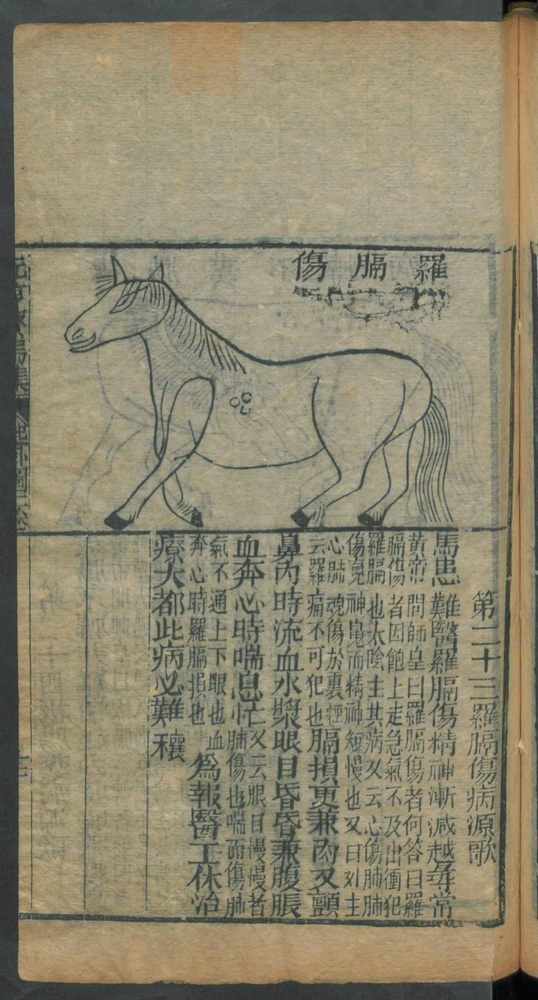 羅膈傷
第二十三羅膈傷病源歌
馬患難醫羅膈傷精神漸減越尋常
黃帝問師皇曰羅膈傷者何答曰羅
膈傷者因飽上走急氣不及出衝犯
羅膈也太陰主其病又云心傷肺肺
傷魂神魂而精神短慢也又曰列主
心肺魂傷於裏經
云羅痛不可犯也膈損更兼肉又顫
鼻內時流血水漿眼目昏昏兼腹脹
血奔心時喘息忙又云眼目慢慢者肺傷也喘而傷肺
氣不通上下眼也血
奔心時羅膈損也為報醫王休治
療大都此病必難穰